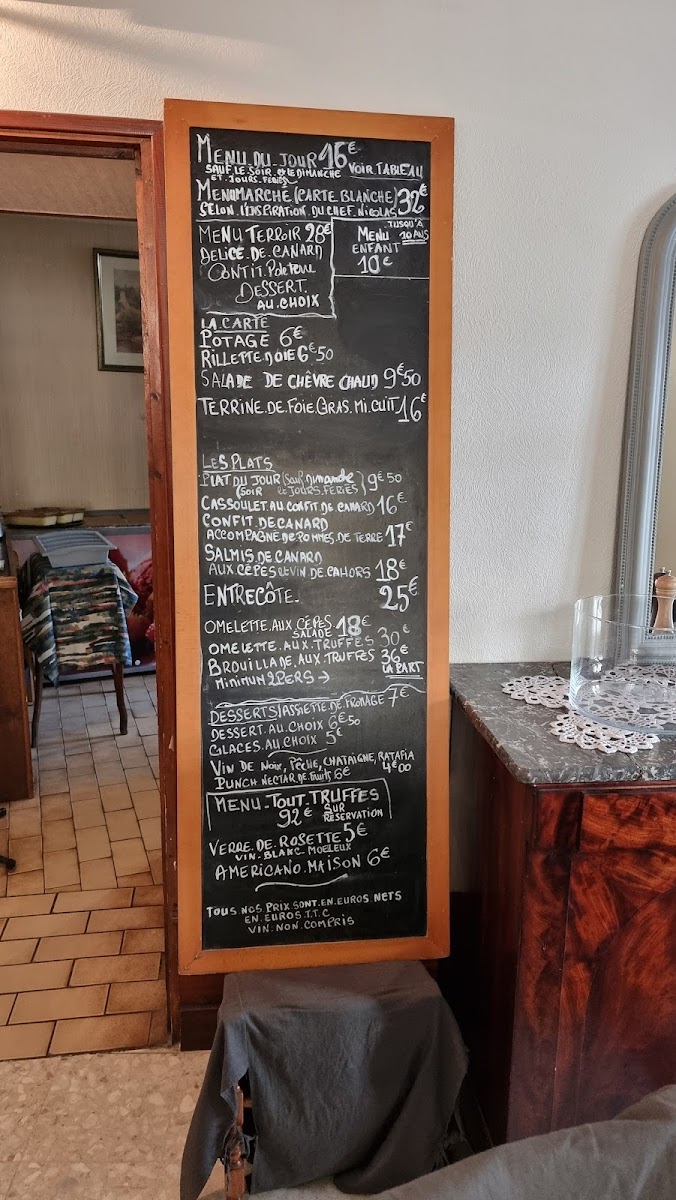 MENU DU JOUR 16€
SAUF LE SOIR et LE DIMANCHE VOIR TABLEAU
ET JOURS FERIES
MENU MARCHE (CARTE BLANCHE) 32€
SELON L'INSPIRATION DU CHEF NICOLAS
MENU TERROIR 28€
DELICE DE CANARD
CONFIT P de terre
DESSERT
AU CHOIX
JUSQU'À
MENU 10 ANS
ENFANT
10€
LA CARTE
POTAGE 6€
RILLETTE D'OIE 6€50
SALADE DE CHÈVRE CHAUD 9€50
TERRINE DE FOIE GRAS MI CUIT 16€
LES PLATS
PLAT DU JOUR (Sauf Dimanche) 9€50
(SOIR et JOURS FERIES)
CASSOULET AU CONFIT DE CANARD 16€
CONFIT DE CANARD
ACCOMPAGNE DE POMMES DE TERRE 17€
SALMIS DE CANARD
AUX CÈPES et VIN DE CAHORS 18€
ENTRECÔTE 25€
OMELETTE AUX CÈPES 18€
SALADE
OMELETTE AUX TRUFFES 30€
BROUILLADE AUX TRUFFES 36€
MINIMUM 2 PERS → LA PART
DESSERTS ASSIETTE DE FROMAGE 7€
DESSERT AU CHOIX 6€50
GLACES AU CHOIX 5€
VIN DE Noix, PÊCHE, CHATAIGNE, RATAFIA
PUNCH NECTAR DE Fruits 6€ 4€00
MENU TOUT TRUFFES
92€ SUR
RESERVATION
VERRE DE ROSETTE 5€
VIN BLANC MOELEUX
AMERICANO MAISON 6€
TOUS NOS PRIX SONT EN EUROS NETS
EN EUROS T.T.C
VIN NON COMPRIS